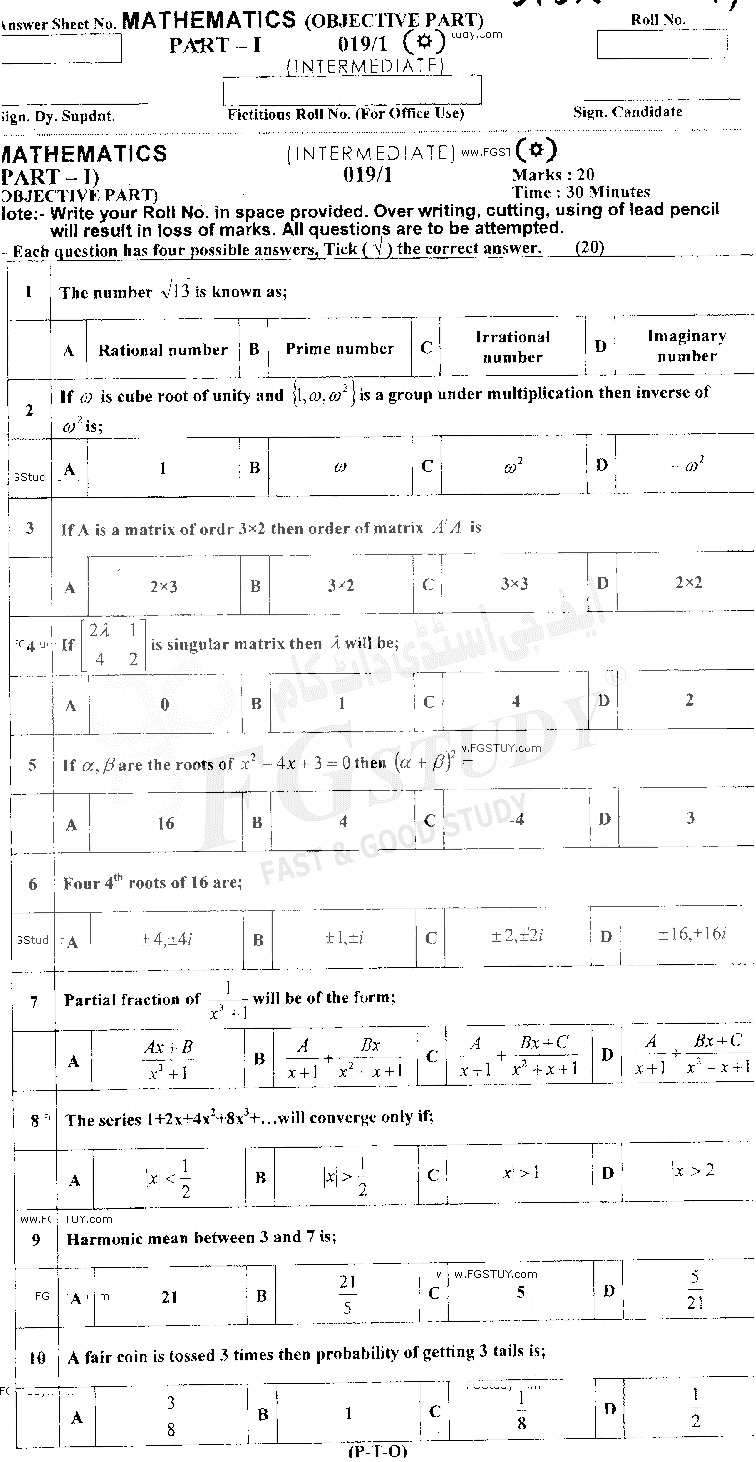 Answer Sheet No. MATHEMATICS (OBJECTIVE PART) Roll No.
PART – I 019/1 (✡)
(INTERMEDIATE)
Sign. Dy. Supdnt. Fictitious Roll No. (For Office Use) Sign. Candidate
MATHEMATICS (INTERMEDIATE) ww.FGST (✡)
PART – I) 019/1 Marks : 20
OBJECTIVE PART) Time : 30 Minutes
Note:- Write your Roll No. in space provided. Over writing, cutting, using of lead pencil
will result in loss of marks. All questions are to be attempted.
- Each question has four possible answers, Tick (√) the correct answer. (20)
1 The number √13 is known as;
A Rational number B Prime number C Irrational number D Imaginary number
2 If ω is cube root of unity and {1, ω, ω²} is a group under multiplication then inverse of
ω² is;
GStud A 1 B ω C ω² D – ω²
3 If A is a matrix of ordr 3×2 then order of matrix AᵗA is
A 2×3 B 3×2 C 3×3 D 2×2
4 If [2λ 1; 4 2] is singular matrix then λ will be;
A 0 B 1 C 4 D 2
ایف جی اسٹڈی ڈاٹ کام
FG STUDY®
FAST & GOOD STUDY
v.FGSTUY.com
5 If α, β are the roots of x² – 4x + 3 = 0 then (α + β)² =
A 16 B 4 C -4 D 3
6 Four 4th roots of 16 are;
GStud A ±4,±4i B ±1,±i C ±2,±2i D ±16,+16i
7 Partial fraction of 1/(x³ + 1) will be of the form;
A (Ax + B)/(x³ + 1) B A/(x+1) + Bx/(x² - x+1) C A/(x+1) + (Bx+C)/(x²+x+1) D A/(x+1) + (Bx+C)/(x² – x+1)
8 The series 1+2x+4x²+8x³+…will converge only if;
A |x| < 1/2 B |x| > 1/2 C |x| > 1 D |x| > 2
ww.FG TUY.com
9 Harmonic mean between 3 and 7 is;
w.FGSTUY.com
FG A 21 B 21/5 C 5 D 5/21
10 A fair coin is tossed 3 times then probability of getting 3 tails is;
A 3/8 B 1 C 1/8 D 1/2
(P-T-O)